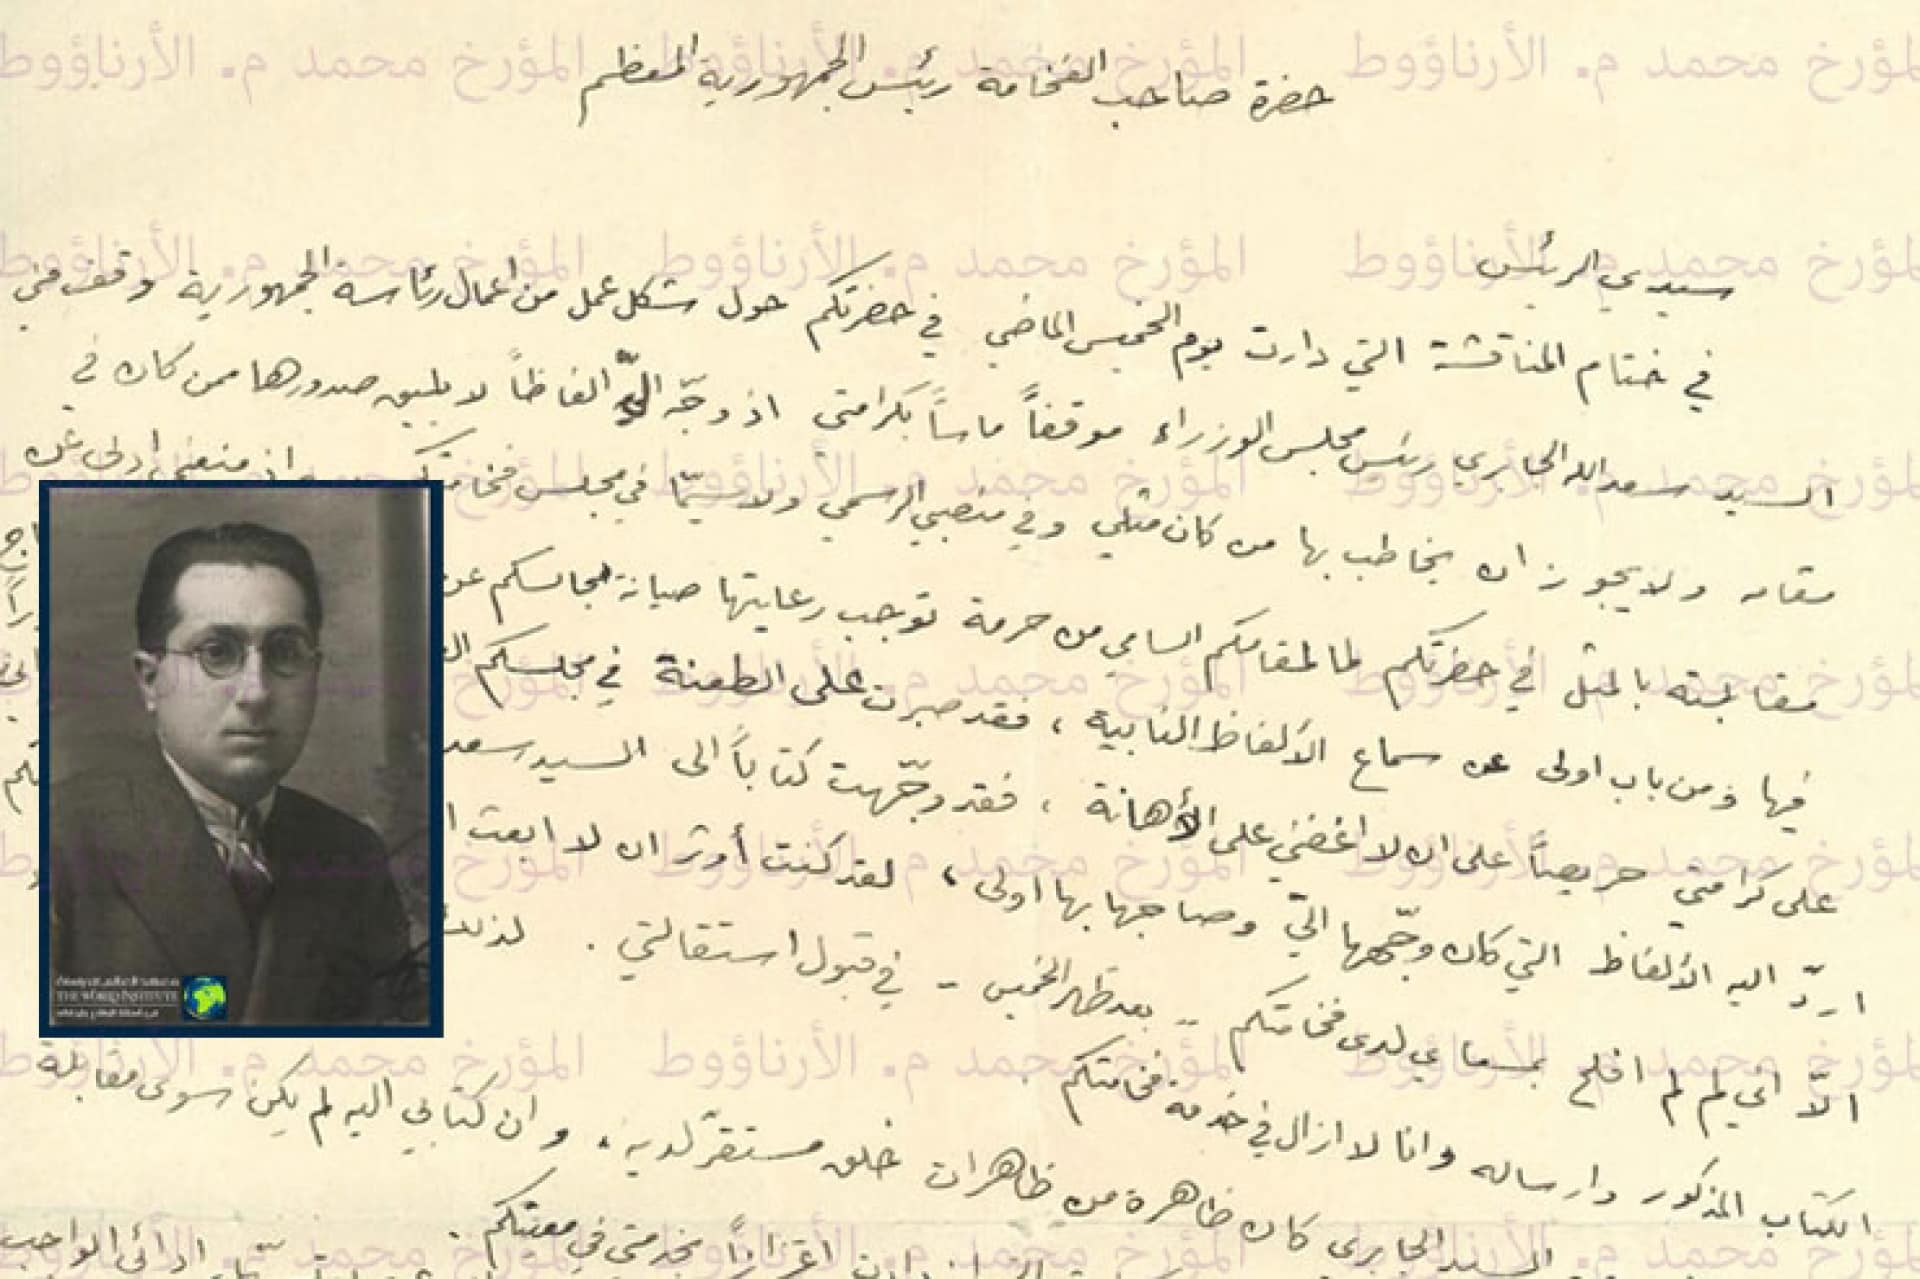 حضرة صاحب الفخامة رئيس الجمهورية المعظم
سيدي الرئيس
في ختام المناقشة التي دارت يوم الخميس الماضي في حضرتكم حول شكل عمل من اعمال رئاسة الجمهورية وقف مني
السيد سعد الله الجابري رئيس مجلس الوزراء موقفاً ماساً بكرامتي اذ وجّه اليّ الفاظاً لا يليق صدورها ممن كان في
مقامه ولا يجوز ان يخاطب بها من كان مثلي وفي منصبي الرسمي ولا سيّما في مجلس
مقابلته بالمثل في حضرتكم لما لمقامكم السامي من حرمة توجب رعايتها صيانة لمجالسكم
فيها ومن باب اولى عن سماع الألفاظ النابية ، فقد صبرت على الطعنة في مجلسكم
على كرامتي حريصاً على ان لا اغضي على الأهانة ، فقد وجّهت كتاباً الى السيد سعد
اردّ اليه الألفاظ التي كان وجّهها اليّ وصاحبها بها اولى ، لقد كنت أوثر ان لا ابعث
الاّ اني لم لم افلح بمسعاي لدى فخامتكم - بعد ظهر الخميس - في قبول استقالتي . لذلك
الكتاب المذكور وارساله وانا لا ازال في خدمة فخامتكم .
السيد الجابري كان ظاهرة من ظاهرات خلق مستقرّ لديه ، وان كتابي اليه لم يكن سوى مقابلة
اعتزازاً بخدمتي في معيتكم .
ادائي الواجب
THE WORLD INSTITUTE
المؤرخ محمد م. الأرناؤوط